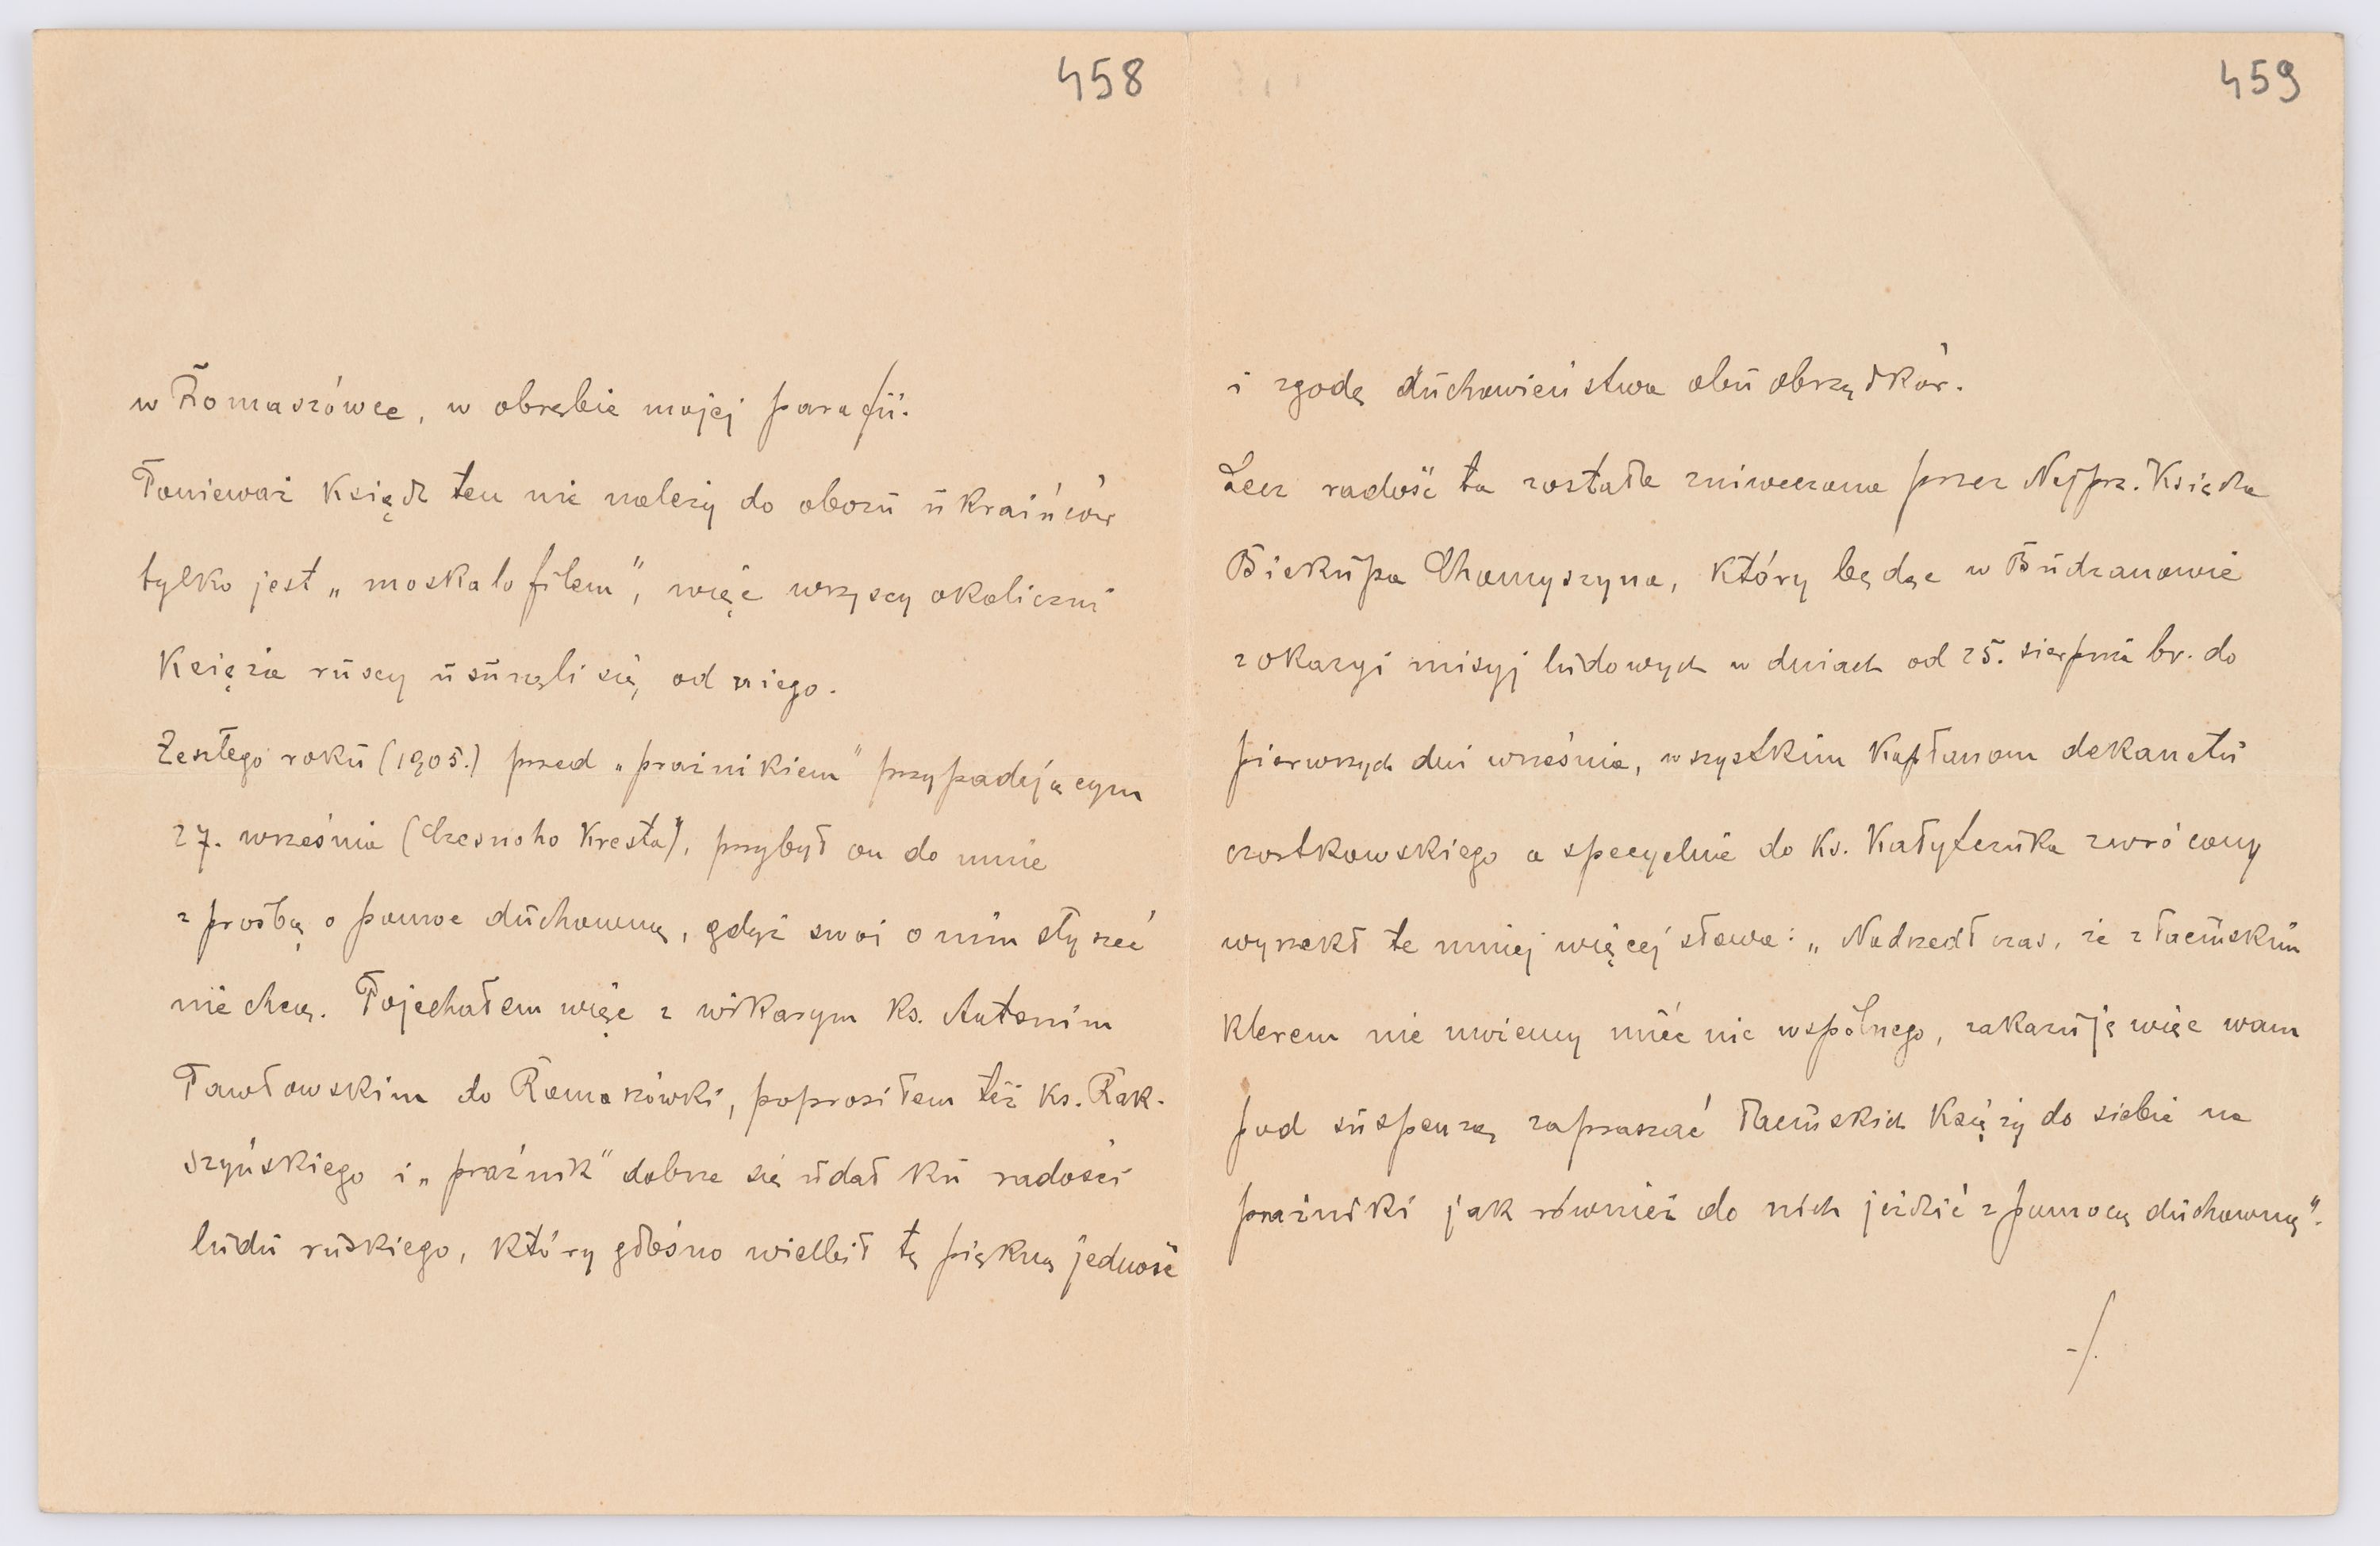 458
w Romaszówce, w obrębie mojej parafii.
Ponieważ ksiądz ten nie należy do obozu ukraińców
tylko jest „moskalofilem", więc wszyscy okoliczni
księża ruscy usunęli się od niego.
Zeszłego roku (1905.) przed „praźnikiem" przypadającym
27. września (Czesnoho Kresta), przybył on do mnie
z prośbą o pomoc duchowną, gdyż swoi o nim słyszeć
nie chcą. Pojechałem więc z wikarym ks. Antonim
Pawłowskim do Romaszówki, poprosiłem też ks. Rak-
szyńskiego i „praźnik" dobrze się udał ku radości
ludu ruskiego, który głośno wielbił tę piękną jedność
459
i zgodę duchowieństwa obu obrządków.
Lecz radość ta została zniweczona przez Najprz. Księdza
Biskupa Chomyszyna, który będąc w Budzanowie
z okazyi misyj ludowych w dniach od 25. sierpnia br. do
pierwszych dni września, wszystkim kapłanom dekanatu
czortkowskiego a specyalnie do ks. Kałytczuka zwrócony
wyrzekł te mniej więcej słowa: „Nadszedł czas, że z łacińskim
klerem nie możemy mieć nic wspólnego, zakazuję więc wam
pod suspenzą zapraszać łacińskich księży do siebie na
praźniki jak również do nich jeździć z pomocą duchowną".
-/.